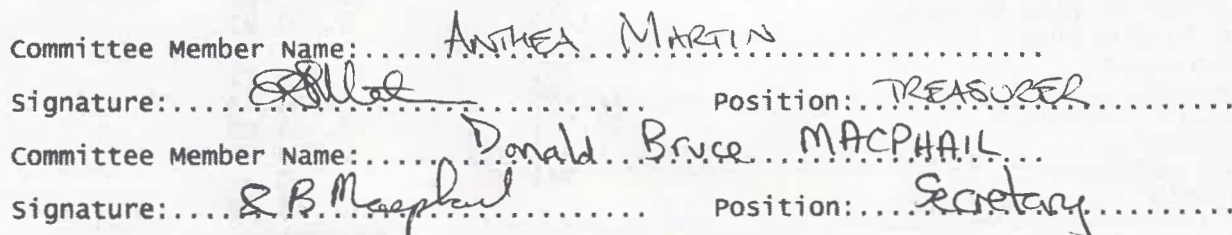 Committee Member Name:.....ANTHEA MARTIN..........................
Signature:.................................... Position:..TREASURER.........
Committee Member Name:......Donald Bruce MACPHAIL..
Signature:....D B Macphail.............. Position:....Secretary.........